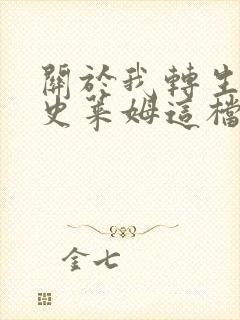 關於我轉生
史萊姆這檔
金七